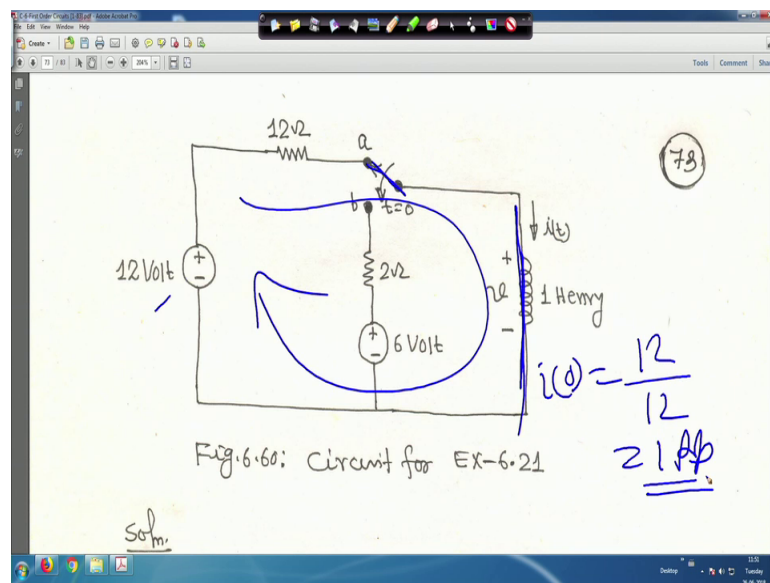 C-6-First Order Circuits [1-83].pdf - Adobe Acrobat Pro
File Edit View Window Help
Create
73 / 83 204% Tools Comment
12Ω
a
73
b t=0
i(t)
+
12 Volt
+
-
2Ω
1 Henry
+
-
6 Volt
-
i(0) = 12
12
= 1 Ap
Fig.6.60: Circuit for EX-6.21
Soln.
Desktop
11:51
Tuesday